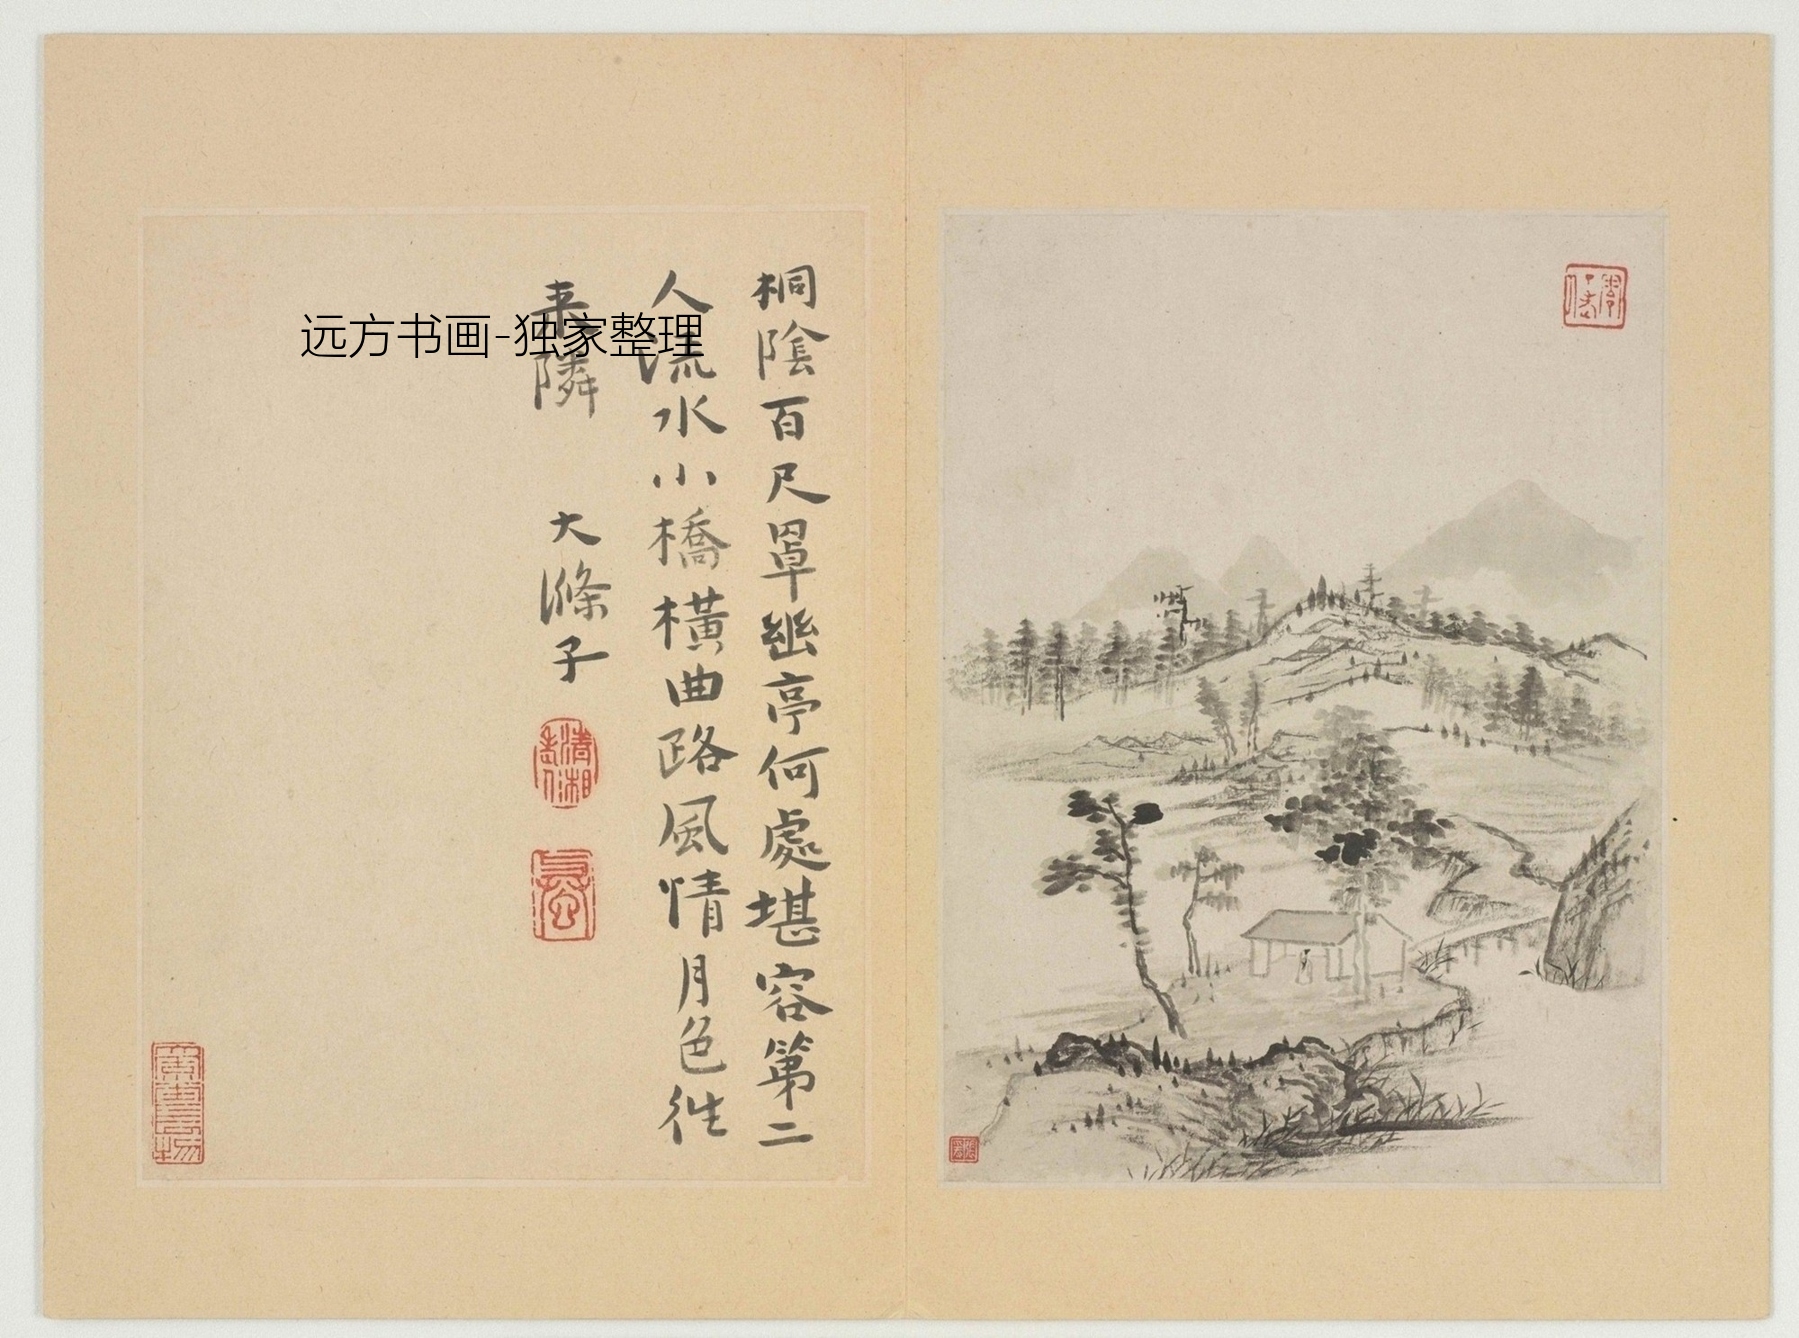 桐陰百尺罩幽亭何處堪容第二
人流水小橋橫曲路風情月色往
来隣
大滌子
清湘
远方书画-独家整理